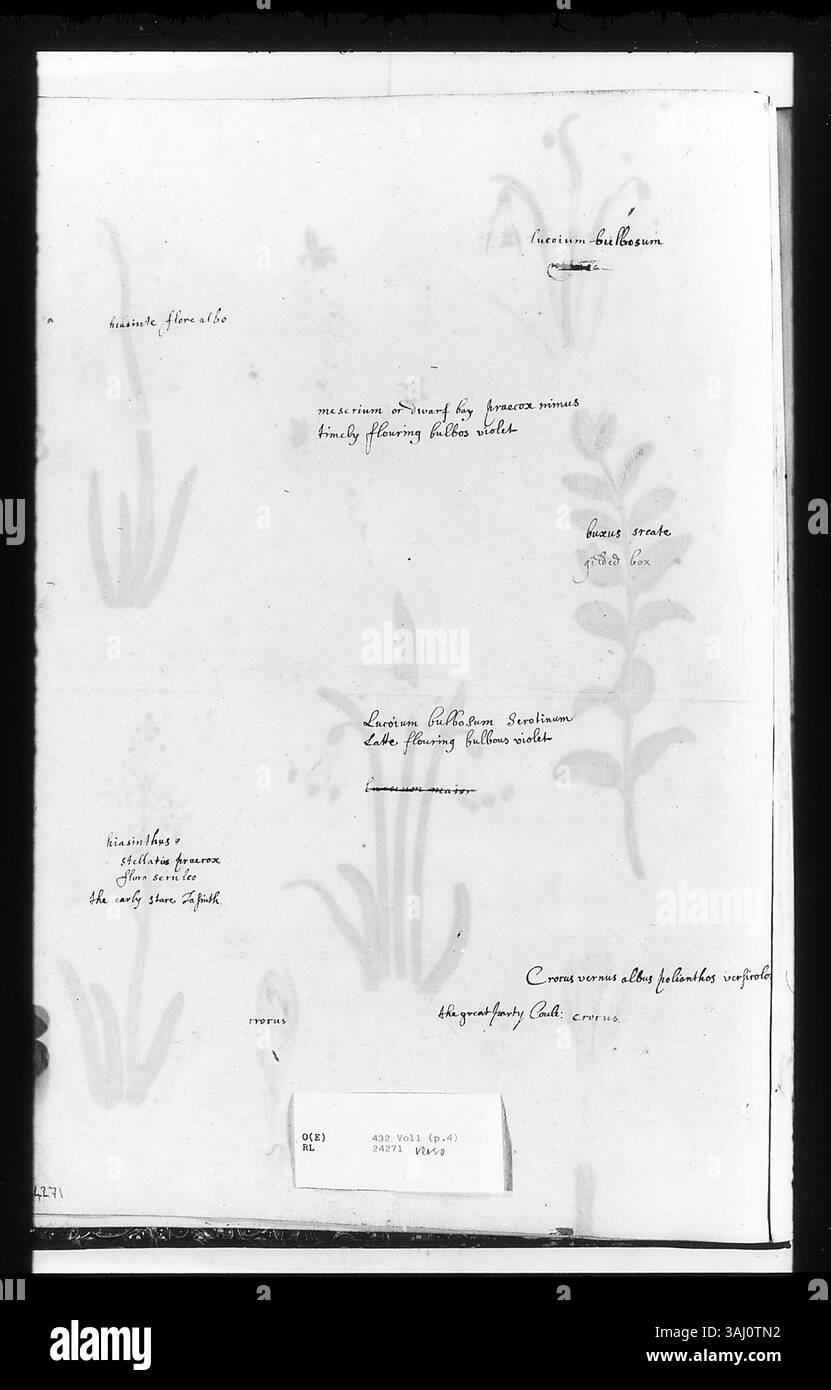 lucoium bulbosum
hiasinte flore albo
meserium or dwarf bay praecox minus
timely flouring bulbos violet
buxus sreate
gilded box
Lucoium bulbosum Serotinum
Latte flouring bulbous violet
hiasinthus
stellatus praecox
flore seruleo
the early starre Jasinth
Crocus vernus albus polianthos versicolor
the great party Coule: crocus
crocus
O(E) 432 Vol1 (p.4)
RL 24271 verso
4271
alamy
alamy
alamy
alamy
Image ID: 3AJ0TN2
www.alamy.com